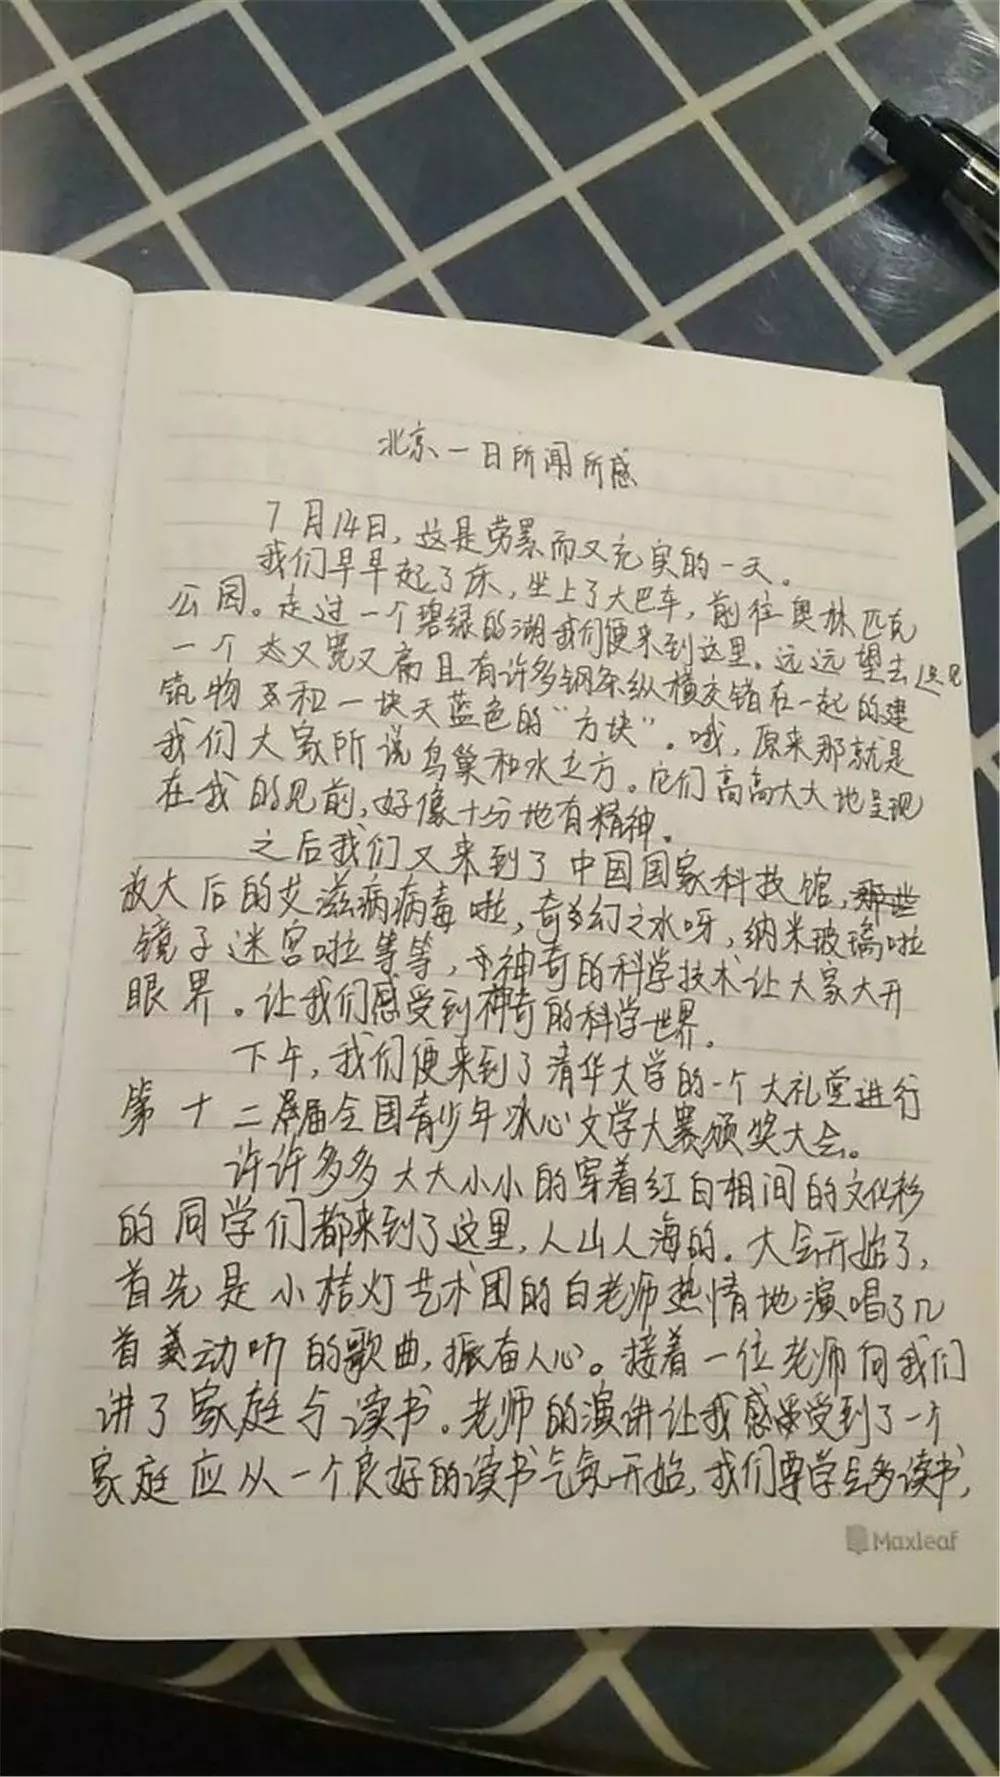 北京一日所闻所感
7月14日，这是劳累而又充实的一天。
我们早早起了床，坐上了大巴车，前往奥林匹克
公园。走过一个碧绿的湖我们便来到这里。远远望去只见
一个又宽又扁且有许多钢条纵横交错在一起的建
筑物和一块天蓝色的“方块”。哦，原来那就是
我们大家所说鸟巢和水立方。它们高高大大地呈现
在我的见前，好像十分地有精神。
之后我们又来到了中国国家科技馆，那些
放大后的艾滋病病毒啦，奇幻之水呀，纳米玻璃啦
镜子迷宫啦等等，神奇的科学技术让大家大开
眼界。让我们感受到神奇的科学世界。
下午，我们便来到了清华大学的一个大礼堂进行
第十二届全国青少年冰心文学大赛颁奖大会。
许许多多大大小小的穿着红白相间的文化衫
的同学们都来到了这里，人山人海的。大会开始了，
首先是小桔灯艺术团的白老师热情地演唱了几
首美动听的歌曲，振奋人心。接着一位老师向我们
讲了家庭与读书。老师的演讲让我感受到了一个
家庭应从一个良好的读书气氛开始，我们要学会多读书，
Maxleaf